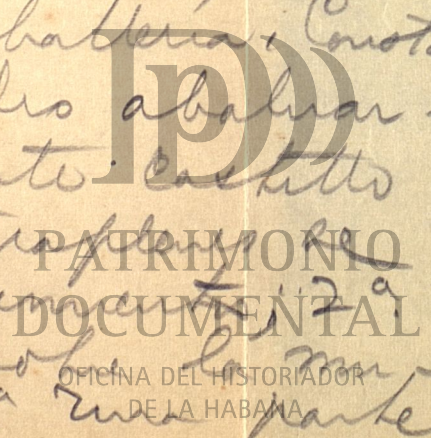 batteria. Const
dro abaluar
nto. Castillo
traplenes re
miento; 2ª.
la mu
una parte
PATRIMONIO
DOCUMENTAL
OFICINA DEL HISTORIADOR
DE LA HABANA